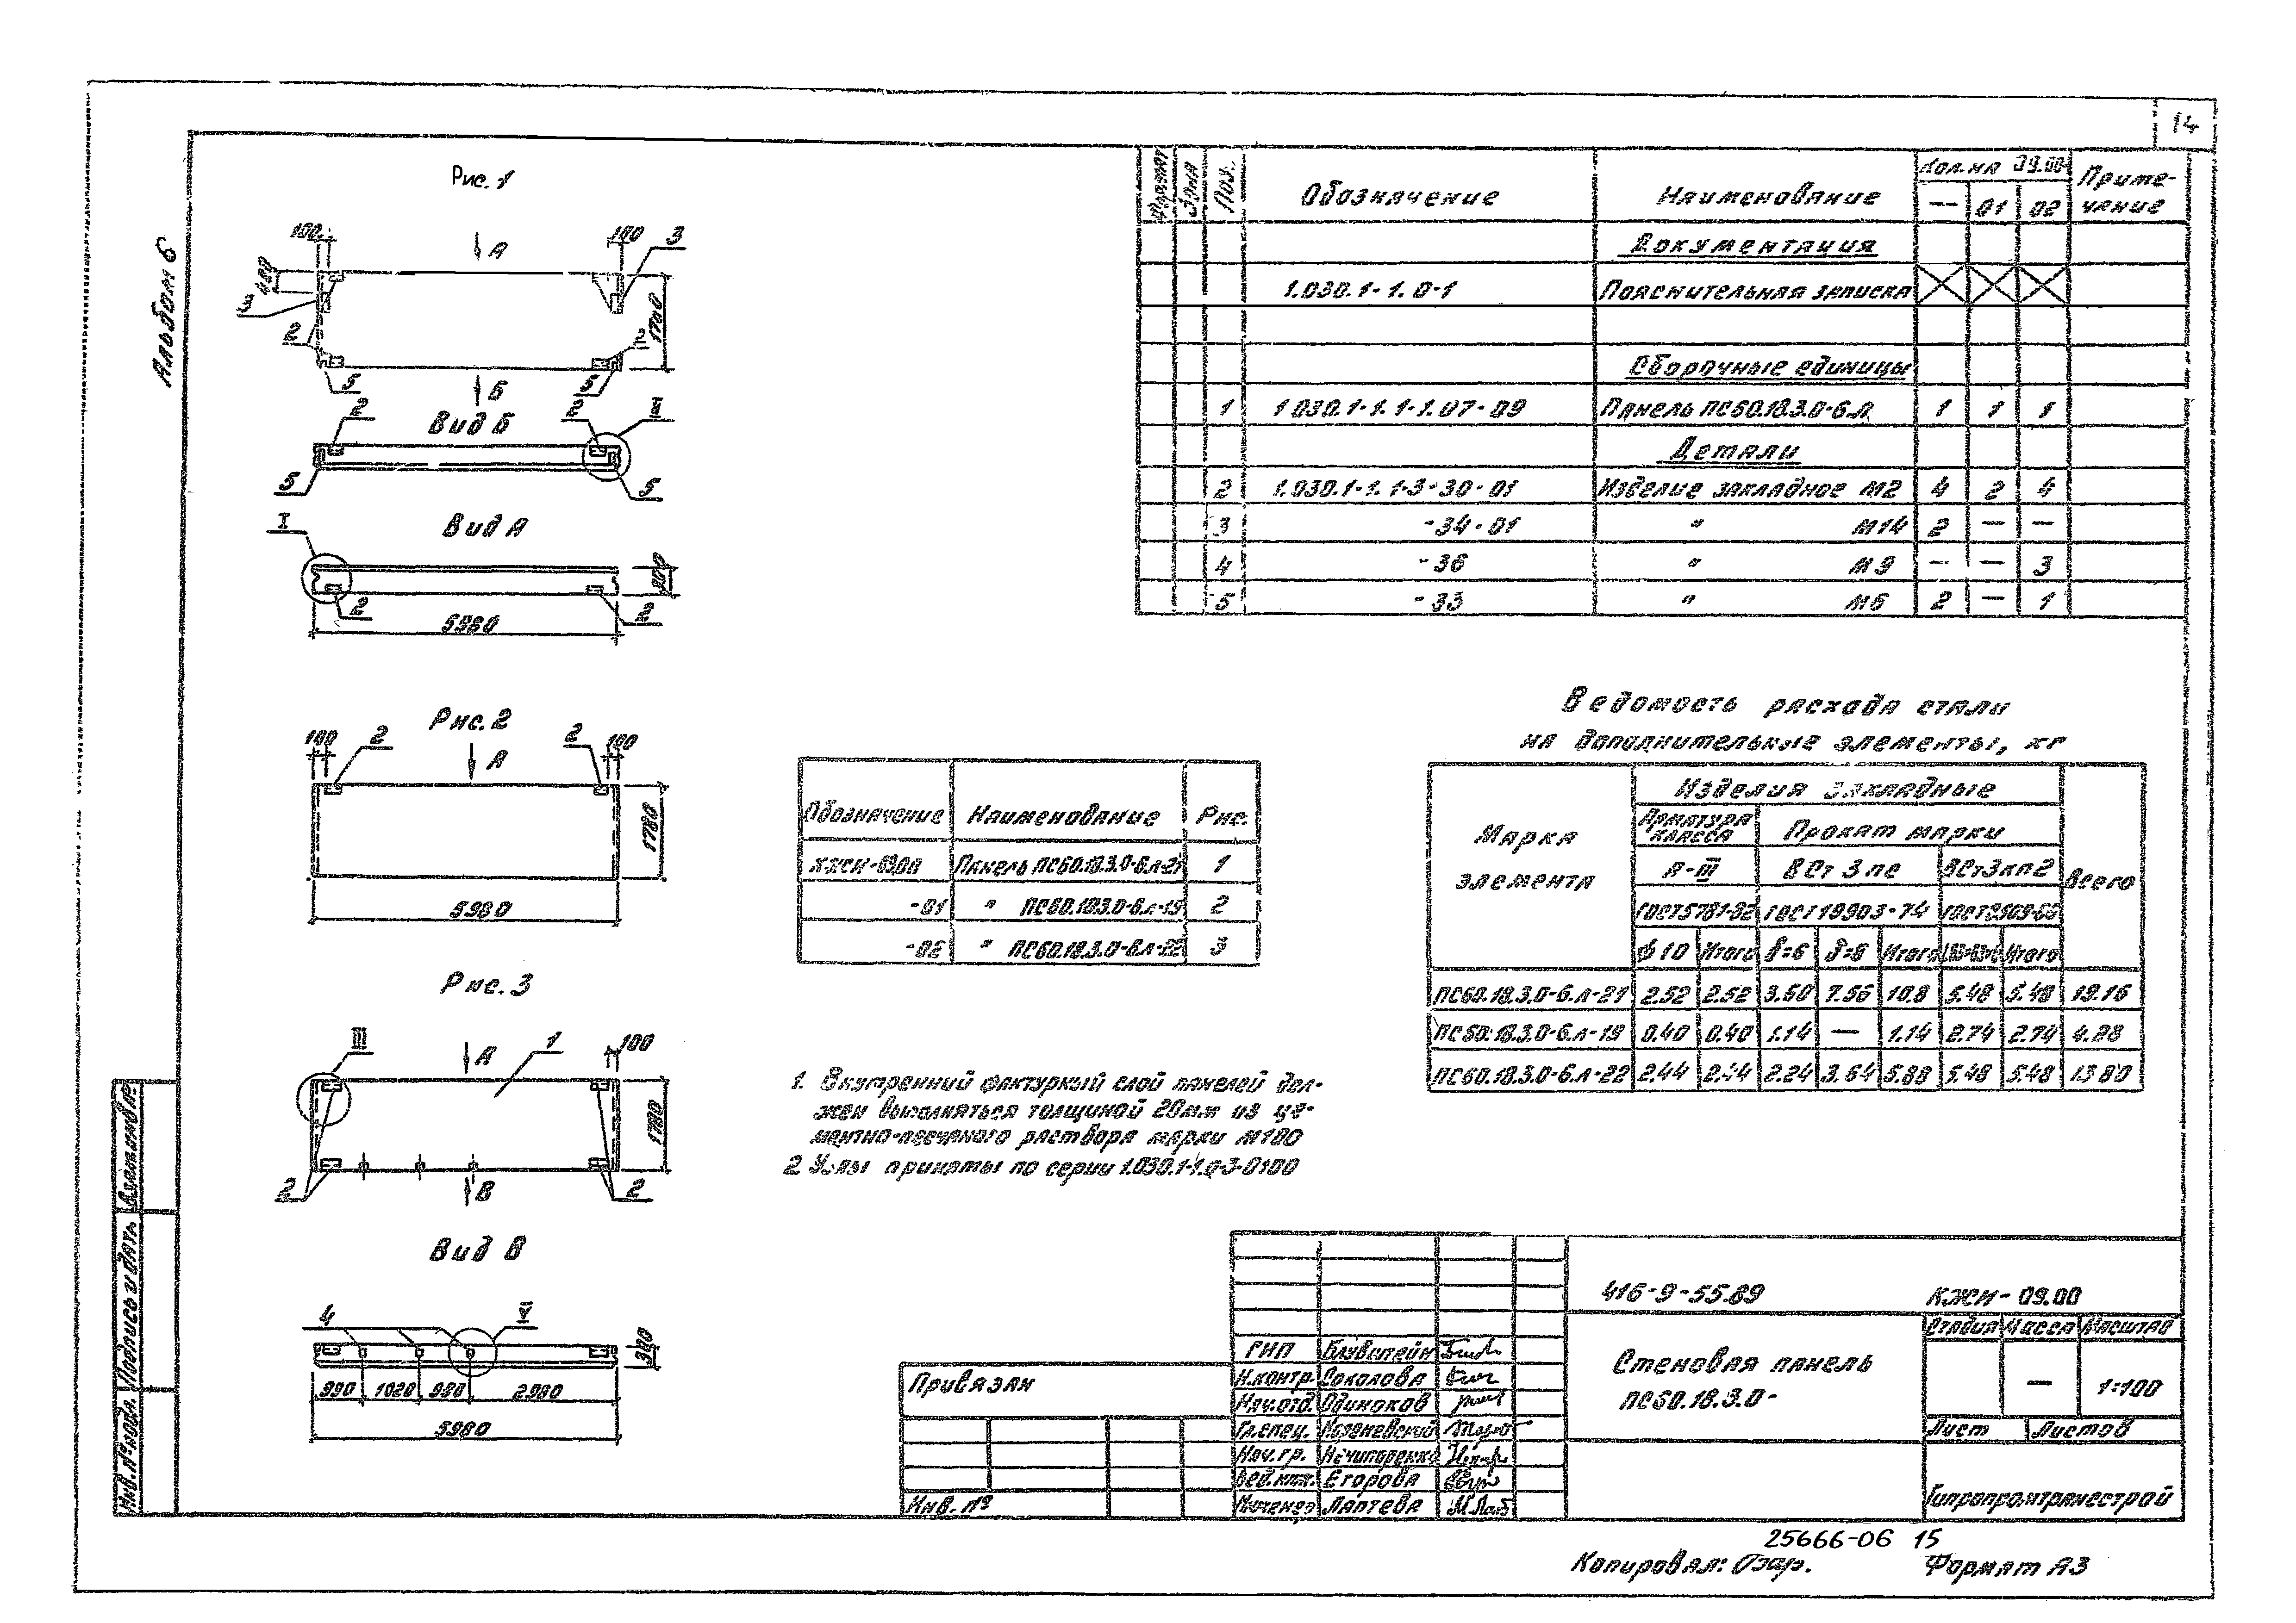 14
Альбом 6
Рис. 1
100 А 100 3
480
3
2 1780 2
5 Б 5
2 Вид Б 2 II
5 5
I Вид А
300
2 2
5980
Рис. 2
100 2 2 100
А
1780
5980
Рис. 3
III А 1 100
1780
2 В 2
Вид В
4 V
300
990 1020 980 2980
5980
Формат Зона Поз. Обозначение Наименование Кол. на 09.00 Приме-
— 01 02 чание
Документация
1.030.1-1.0-1 Пояснительная записка
Сборочные единицы
1 1.030.1-1.1-1.07-09 Панель ПС60.18.3.0-6.л 1 1 1
Детали
2 1.030.1-1.1-3-30-01 Изделие закладное М2 4 2 4
3 -34-01 " М14 2 — —
4 -36 " М9 — — 3
5 -33 " М6 2 — 1
Обозначение Наименование Рис.
КЖСИ-09.00 Панель ПС60.18.3.0-6.л-21 1
-01 " ПС60.18.3.0-6.л-19 2
-02 " ПС60.18.3.0-6.л-22 3
Ведомость расхода стали
на дополнительные элементы, кг
Марка элемента Изделия закладные Всего
Арматура класса Прокат марки
А-III ВСт 3 пс ВСт3кп2
ГОСТ5781-82 ГОСТ19903-74
ф10 Итого δ=6 δ=8 Итого Итого
ПС60.18.3.0-6.л-21 2.52 2.52 3.60 7.56 10.8 5.48 5.48 19.16
ПС60.18.3.0-6.л-19 0.40 0.40 1.14 — 1.14 2.74 2.74 4.28
ПС60.18.3.0-6.л-22 2.44 2.44 2.24 3.64 5.88 5.48 5.48 13.80
1. Внутренний фактурный слой панелей дол-
жен выполняться толщиной 20мм из це-
ментно-песчаного раствора марки М100
2. Узлы приняты по серии 1.030.1-1.0-3-0100
Инв. № подл. Подпись и дата Взам.инв.№
Привязан
Инв. №
ГИП
Н.контр. Соколова
Нач.отд. Одиноков
Гл.спец.
Нач.гр. Нечипоренко
Вед.инж. Егорова
Инженер Лаптева
416-9-55.89 КЖИ-09.00
Стеновая панель
ПС60.18.3.0-
Стадия Масса Масштаб
— 1:100
Лист Листов
Гипропромтрансстрой
25666-06 15
Копировал: Формат А3